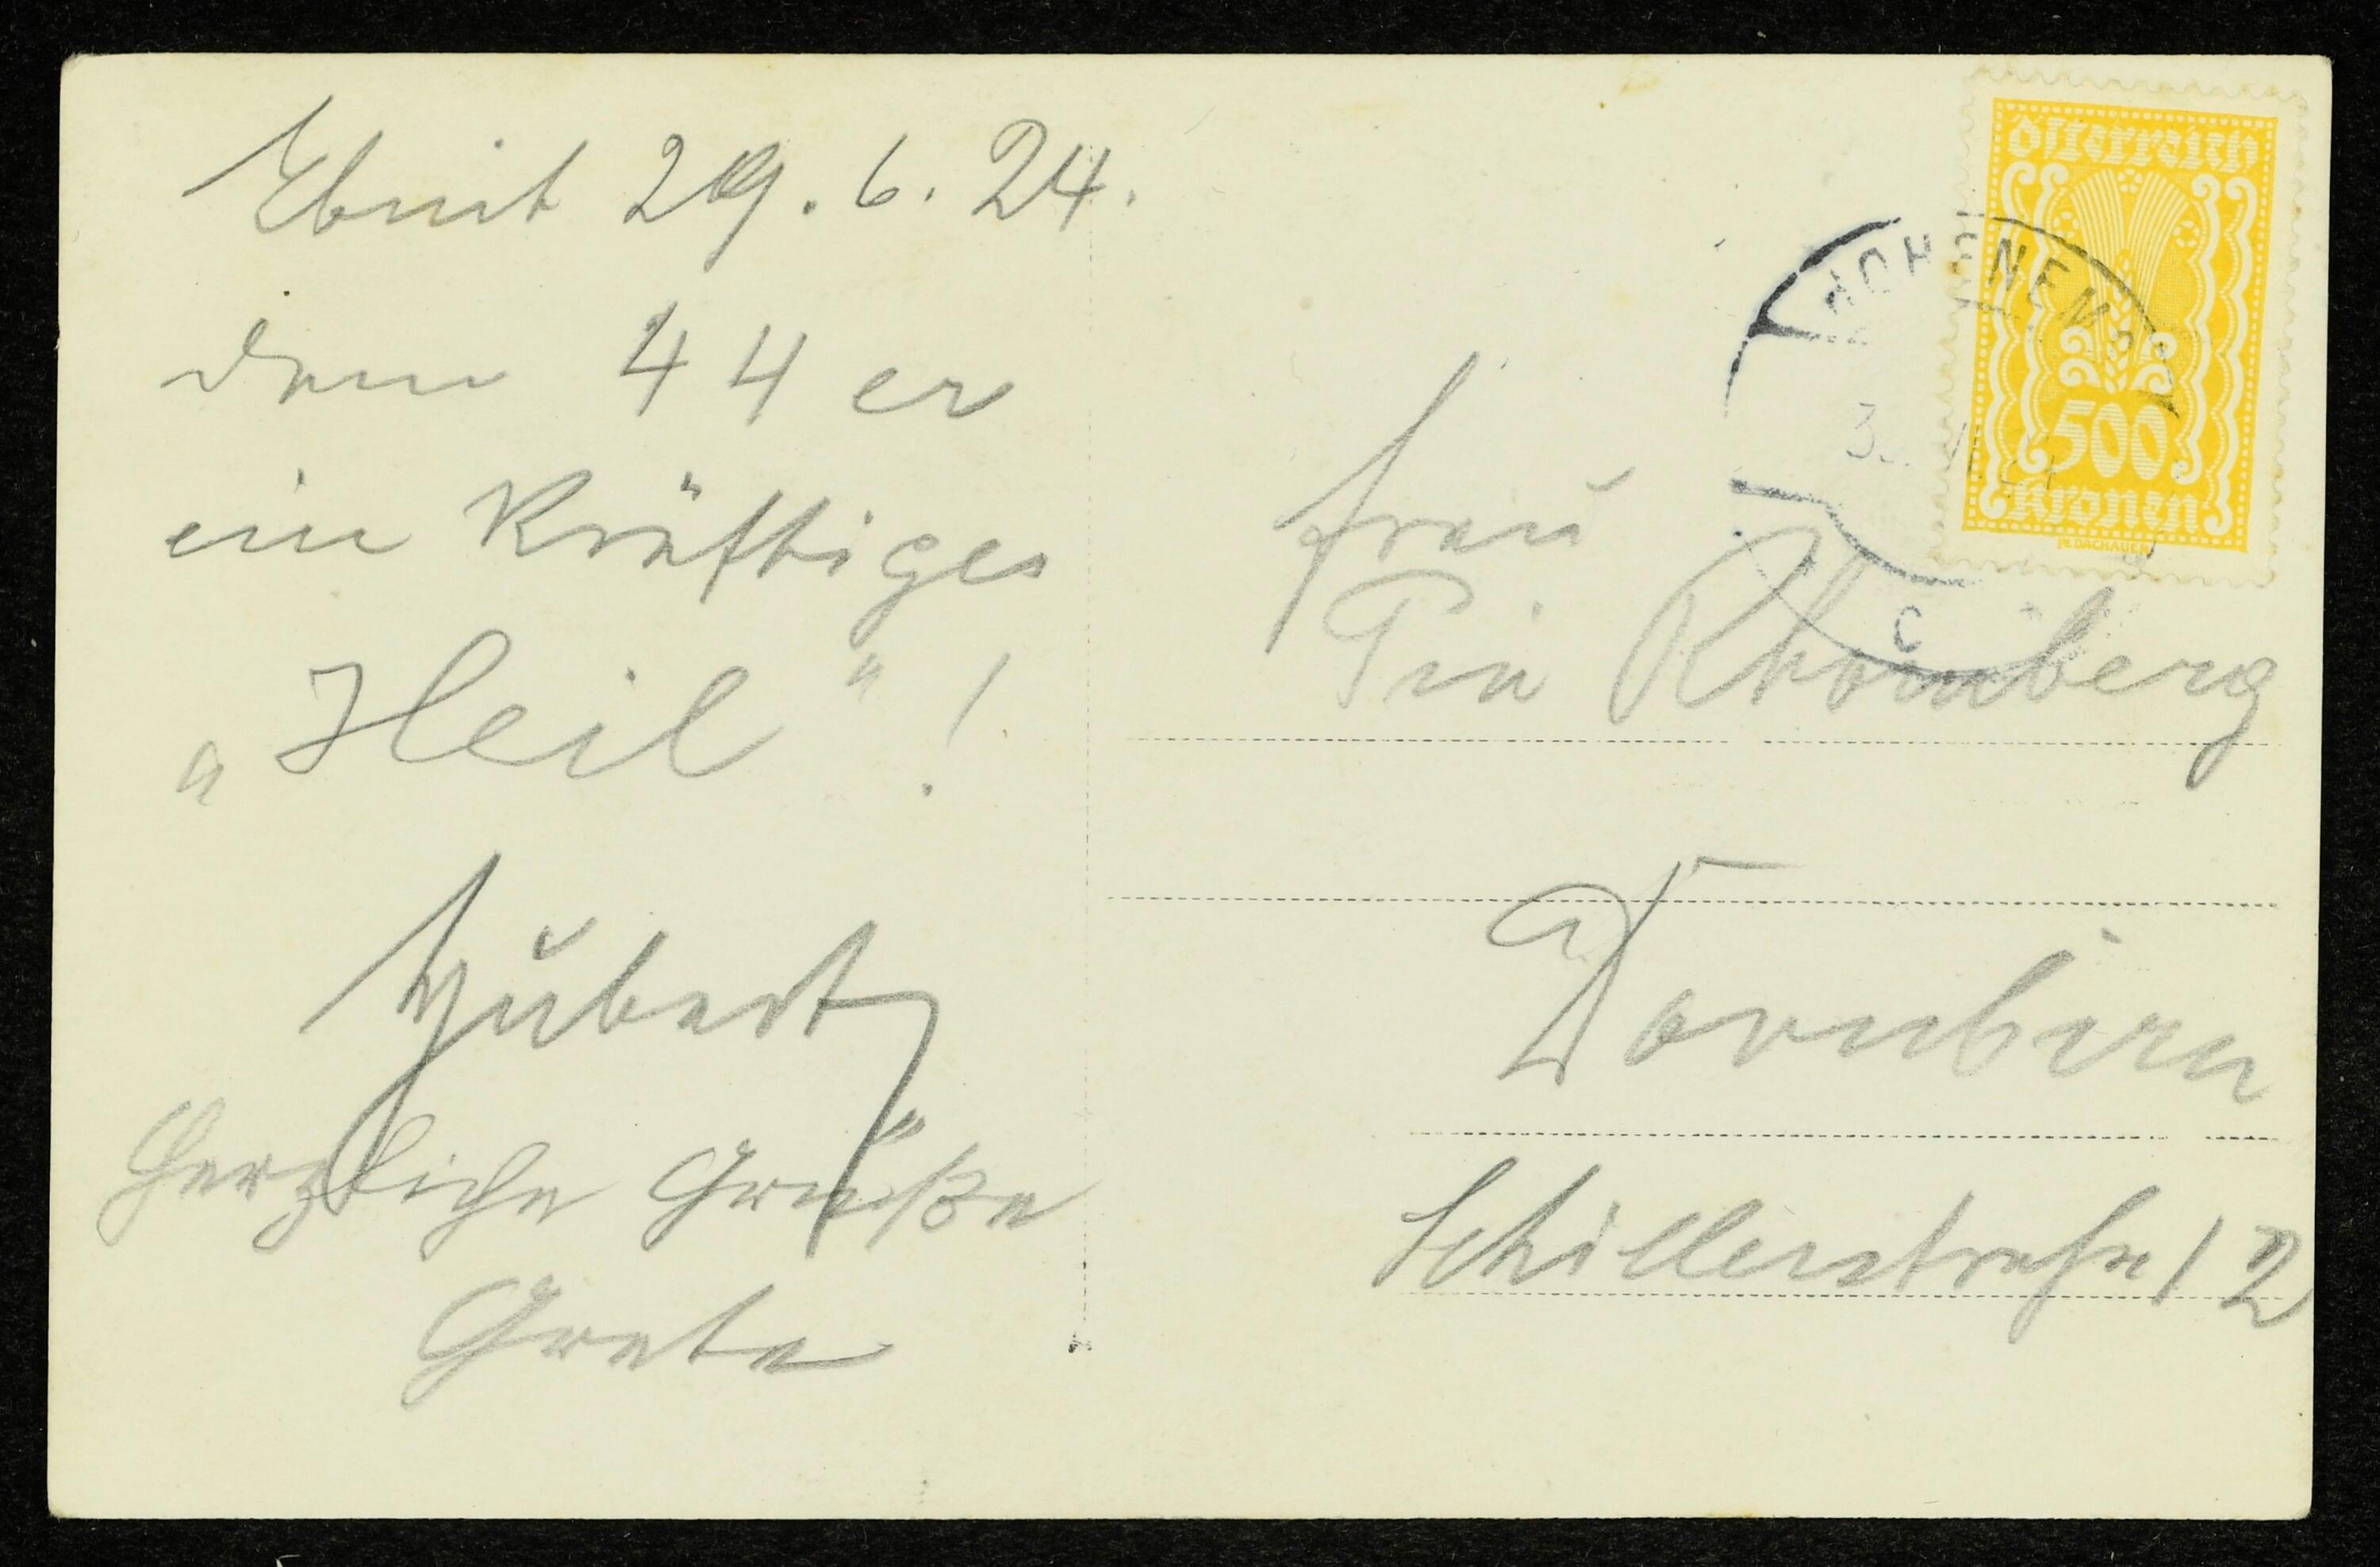 Ebnit 29.6.24.
dem 44er
ein kräftiges
„Heil“!
Hubert
Herzliche Grüße
Grete
Österreich
500
Kronen
HOHENEMS
C
Frau
Pia Rhomberg
Dornbirn
Schillerstraße 12